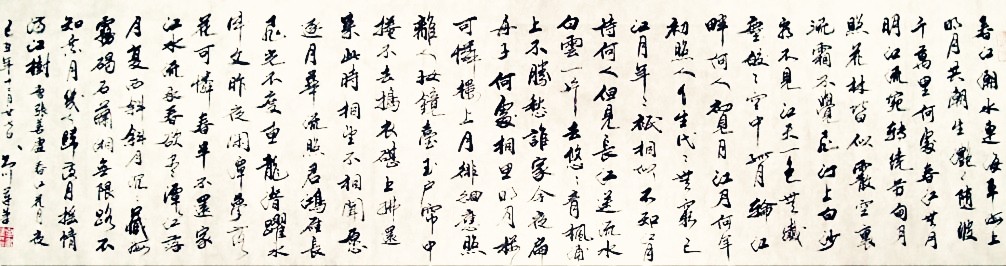 春江潮水連海平海上
明月共潮生灩々隨波
千萬里何處春江無月
明江流宛轉繞芳甸月
照花林皆似霰空裏
流霜不覺飛汀上白沙
看不見江天一色無纖
塵皎々空中孤月輪江
畔何人初見月江月何年
初照人人生代々無窮已
江月年々祗相似不知江月
待何人但見長江送流水
白雲一片去悠々青楓浦
上不勝愁誰家今夜扁
舟子何處相思明月樓
可憐樓上月徘徊應照
離人妝鏡臺玉戶簾中
捲不去擣衣碪上拂還
來此時相望不相聞願
逐月華流照君鴻雁長
飛光不度魚龍潛躍水
成文昨夜閑潭夢落
花可憐春半不還家
江水流春欲盡潭江落
月復西斜斜月沉々藏海
霧碣石瀟湘無限路不
知乘月幾人歸落月搖情
滿江樹 張若虛春江花月夜
己丑年十二月廿